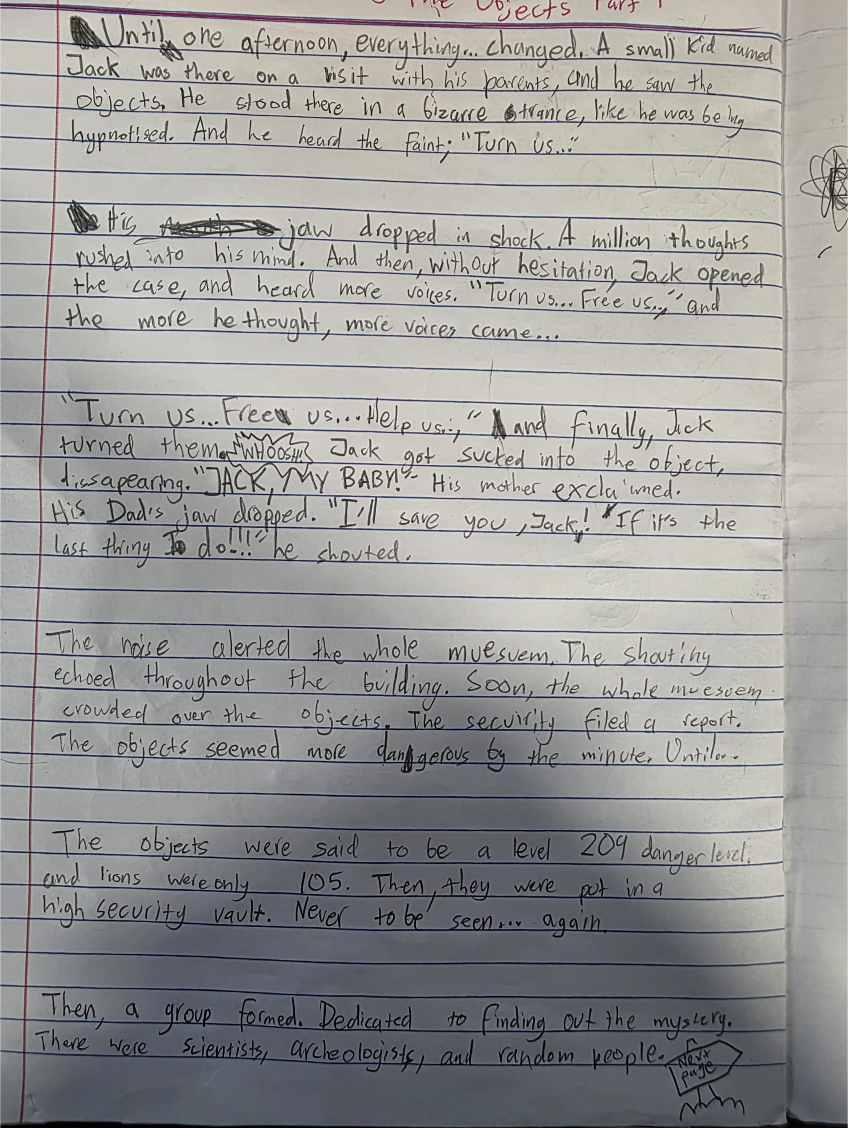 The Objects Part 1
Until one afternoon, everything... changed. A small kid named
Jack was there on a visit with his parents, and he saw the
objects. He stood there in a bizarre strance, like he was being
hypnotised. And he heard the faint; "Turn us..."
His jaw dropped in shock. A million thoughts
rushed into his mind. And then, without hesitation, Jack opened
the case, and heard more voices. "Turn us... Free us..," and
the more he thought, more voices came...
"Turn us... Free us... Help us..," and finally, Jack
turned them. WHOOSH!! Jack got sucked into the object,
dissapearing. "JACK, MY BABY!" His mother exclaimed.
His Dad's jaw dropped. "I'll save you, Jack! If it's the
last thing I do!!!" he shouted.
The noise alerted the whole muesuem. The shouting
echoed throughout the building. Soon, the whole muesuem
crowded over the objects. The secuirity filed a report.
The objects seemed more dangerous by the minute. Until...
The objects were said to be a level 209 danger level.
and lions were only 105. Then, they were put in a
high security vault. Never to be seen... again.
Then, a group formed. Dedicated to finding out the mystery.
There were scientists, archeologists, and random people.
Next
page